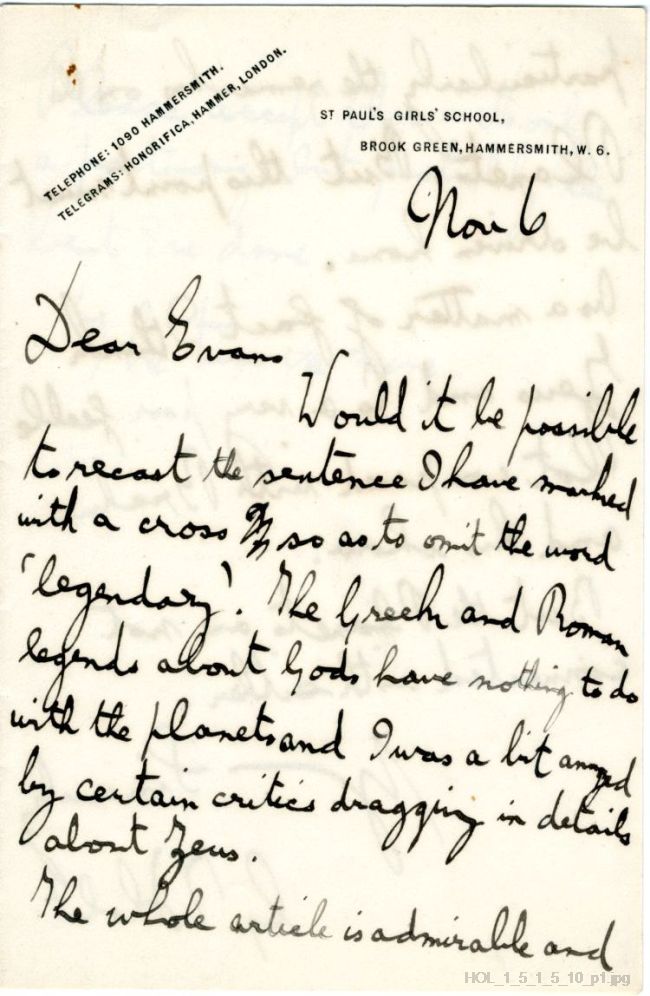 TELEPHONE: 1090 HAMMERSMITH.
TELEGRAMS: HONORIFICA, HAMMER, LONDON.
ST PAUL'S GIRLS' SCHOOL,
BROOK GREEN, HAMMERSMITH, W. 6.
Nov 6
Dear Evans
Would it be possible
to recast the sentence I have marked
with a cross so as to omit the word
'legendary'. The Greek and Roman
legends about Gods have nothing to do
with the planets and I was a bit annoyed
by certain critics dragging in details
about Zeus.
The whole article is admirable and
HOL_1_5_1_5_10_p1.jpg